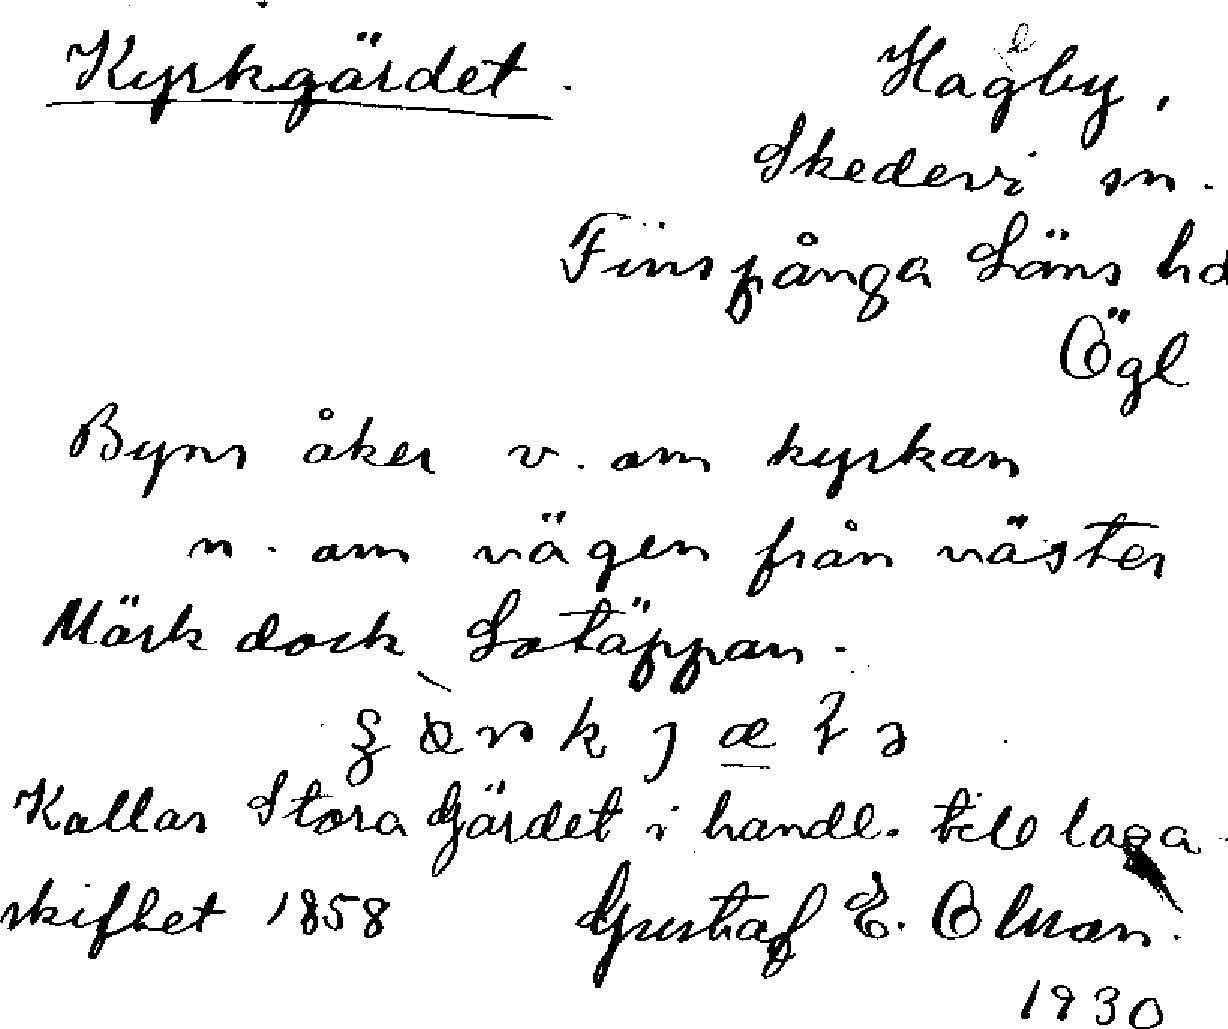 Kyrkgärdet. Hagby,
Skedevi sn.
Finspånga Läns hd
Ögl
Byns åker v. om kyrkan
n. om vägen från väster
Märk dock Sotäppan.
Kallas Stora Gärdet i handl. till laga
skiftet 1858 Gustaf E. Olsson.
1930